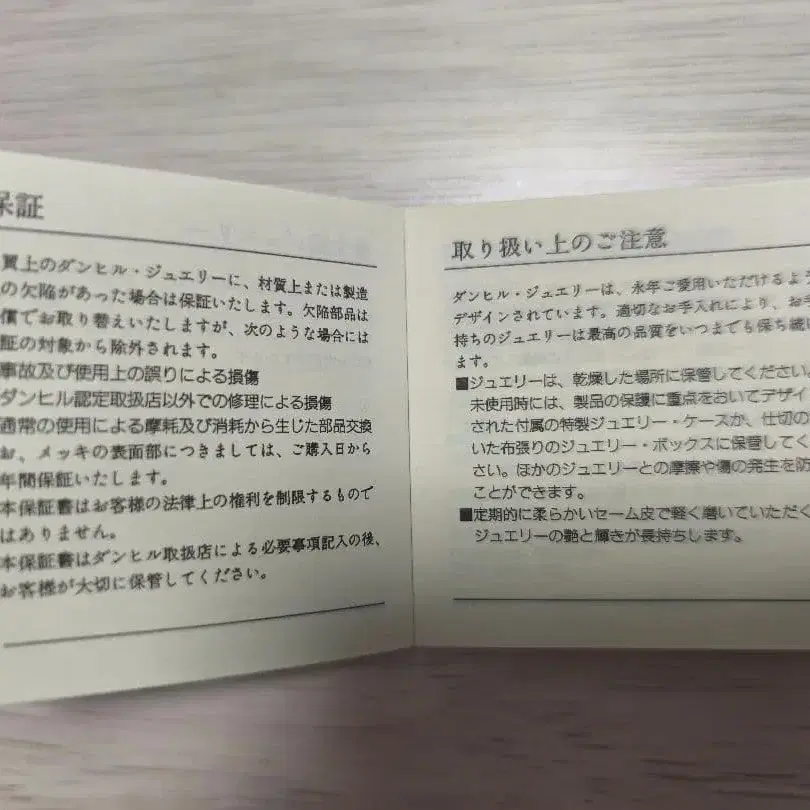 保証
質上のダンヒル・ジュエリーに、材質上または製造
の欠陥があった場合は保証いたします。欠陥部品は
償でお取り替えいたしますが、次のような場合には
証の対象から除外されます。
事故及び使用上の誤りによる損傷
ダンヒル認定取扱店以外での修理による損傷
通常の使用による摩耗及び消耗から生じた部品交換
お、メッキの表面部につきましては、ご購入日から
年間保証いたします。
本保証書はお客様の法律上の権利を制限するもので
はありません。
本保証書はダンヒル取扱店による必要事項記入の後、
お客様が大切に保管してください。
取り扱い上のご注意
ダンヒル・ジュエリーは、永年ご愛用いただけるよう
デザインされています。適切なお手入れにより、お手
持ちのジュエリーは最高の品質をいつまでも保ち続け
ます。
■ジュエリーは、乾燥した場所に保管してください。
未使用時には、製品の保護に重点をおいてデザイ
された付属の特製ジュエリー・ケースか、仕切の
いた布張りのジュエリー・ボックスに保管してく
さい。ほかのジュエリーとの摩擦や傷の発生を防
ことができます。
■定期的に柔らかいセーム皮で軽く磨いていただく
ジュエリーの艶と輝きが長持ちします。